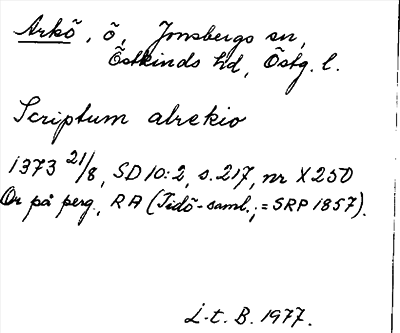 Arkö, ö, Jonsbergs sn,
Östkinds hd, Östg. l.
Scriptum alrekio
1373 21/8, SD 10:2, s. 217, nr X250
Or på perg., RA (Tidö-saml.; = SRP 1857).
L. t. B. 1977.